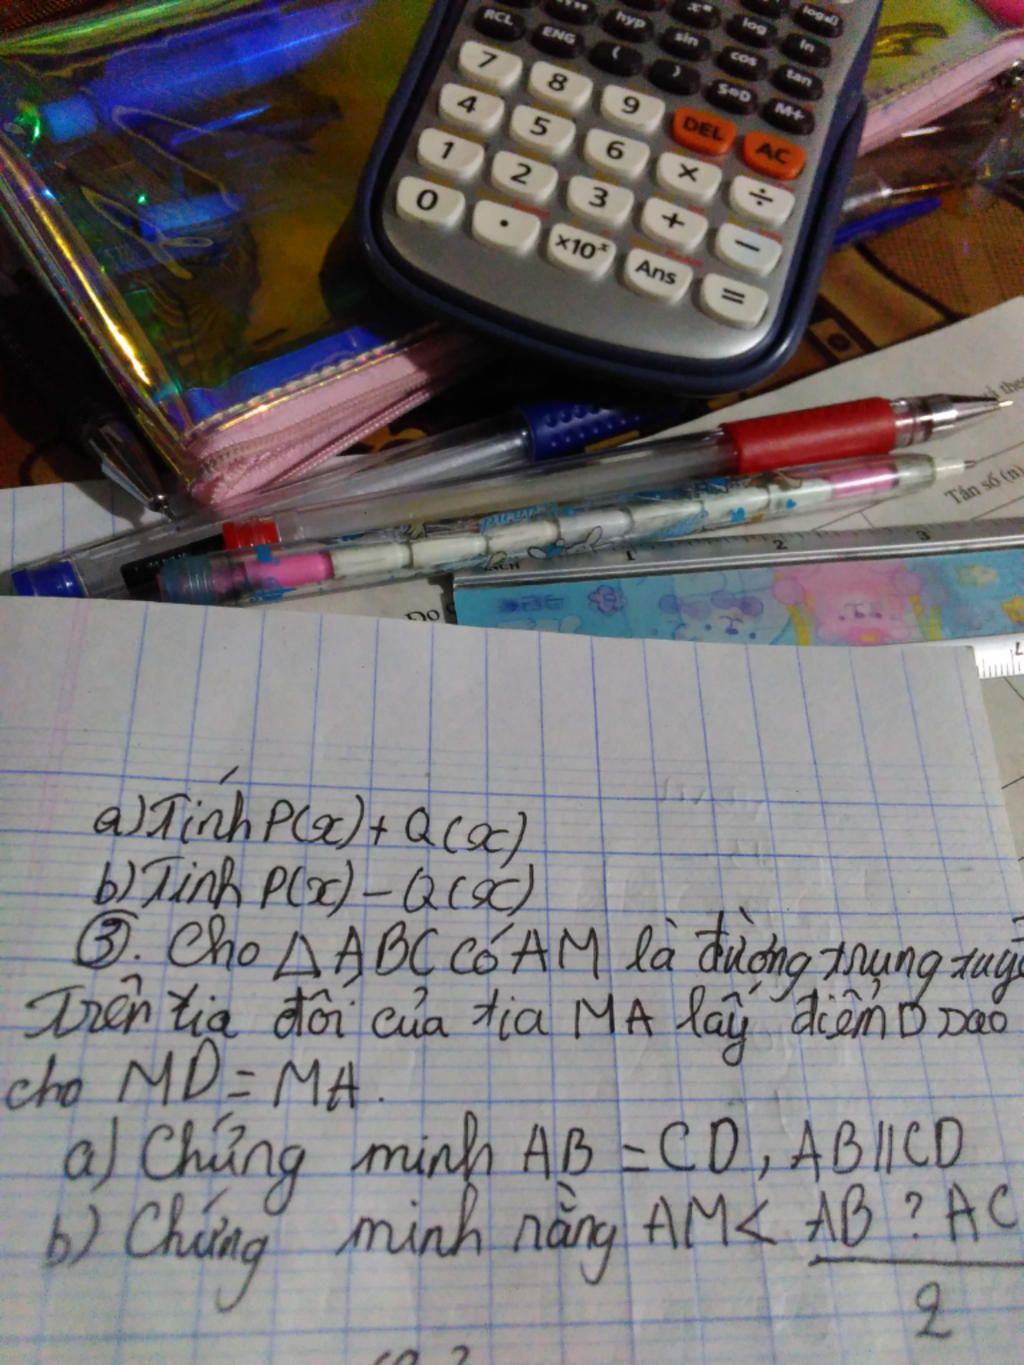 RCL
hyp
log
ln
ENG
(
sin
cos
tan
)
S⇔D
M+
7
8
9
DEL
AC
4
5
6
×
÷
1
2
3
+
−
0
.
×10ˣ
Ans
=
Tần số (n)
1
2
3
Do
a) Tính P(x) + Q(x)
b) Tính P(x) − Q(x)
③. Cho △ABC có AM là đường trung
Trên tia đối của tia MA lấy điểm D sao
cho MD = MA.
a) Chứng minh AB = CD, AB // CD
b) Chứng minh rằng AM < AB ? AC
2